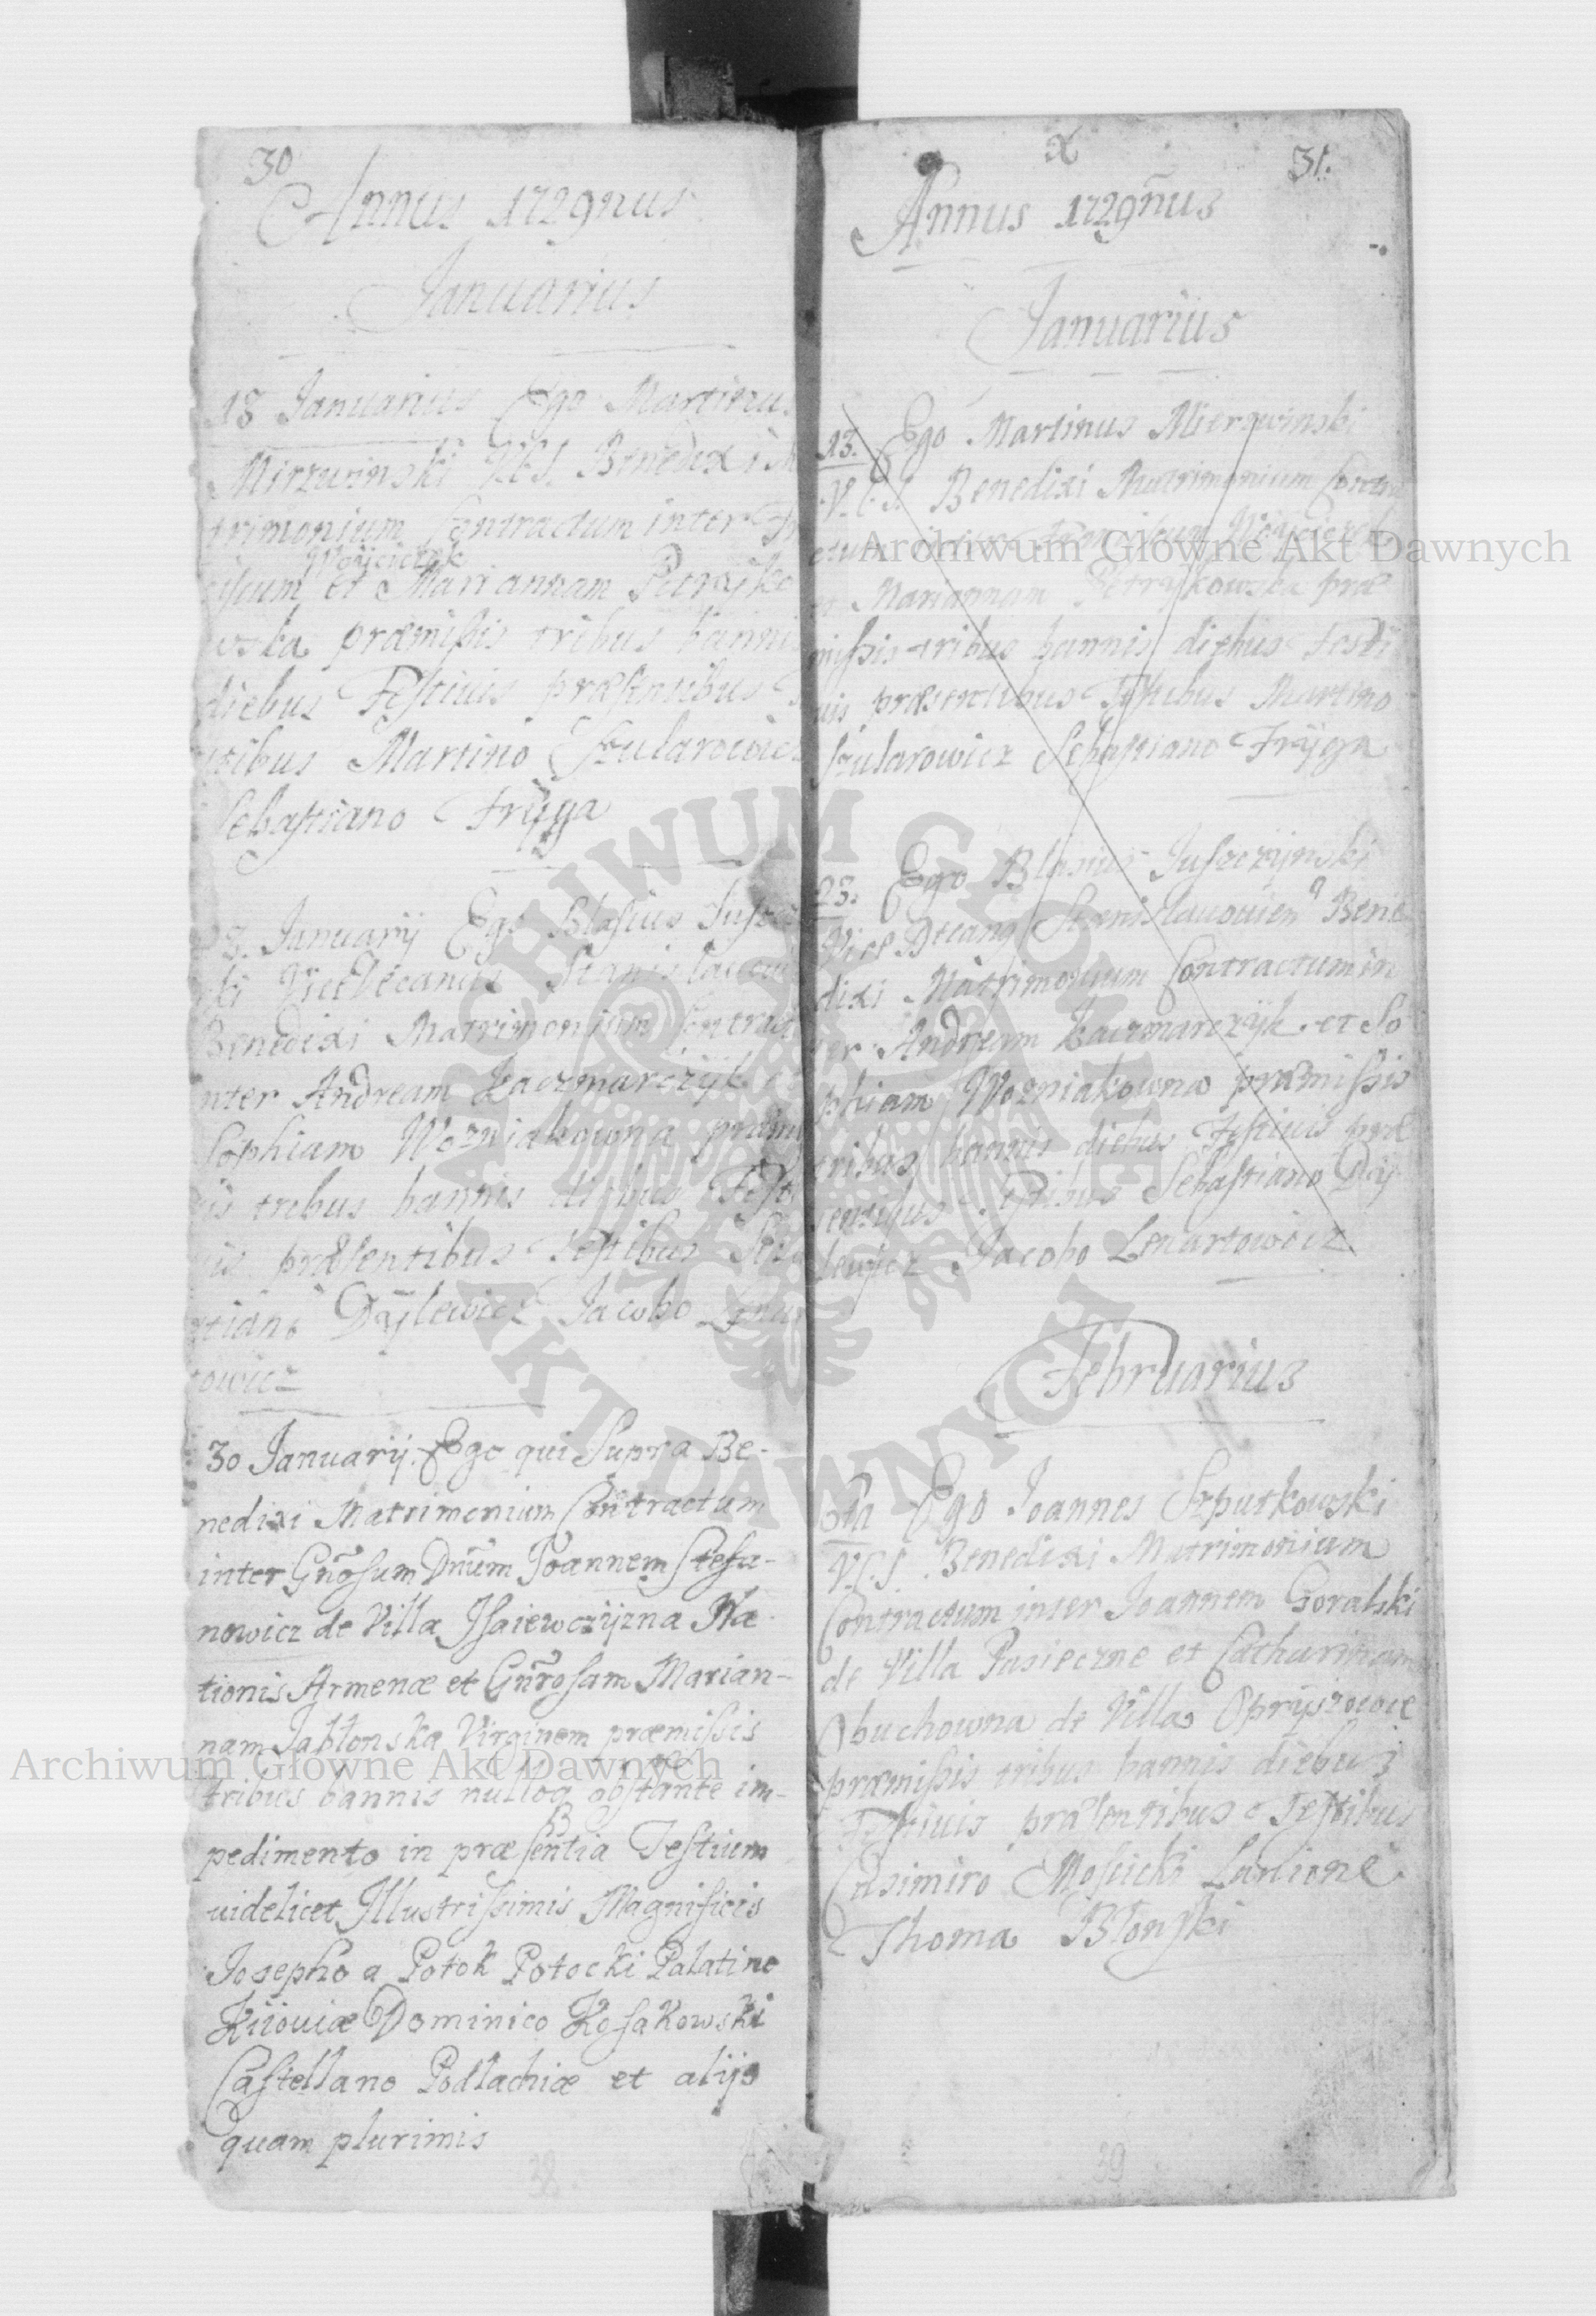 30
Annus 1729nus
Januarius
18 Januarius Ego Martinu
Mirzwinski V.C.S. Benedixi M
trimonium Contractum inter Fr
Woyciczek
ciscum et Mariannam Petryko
wska præmissis tribus bannis
diebus Festiuis præsentibus
stibus Martino Szularowicz
Sebastiano Fryga
28. Januarij Ego Blasius Juszcz
ski ViceDecanus Stanislaouie
Benedixi Matrimonium Contrac
inter Andream Kaczmarczyk et
Sophiam Wozniakowna præmis
is tribus bannis diebus Festi
uis præsentibus Testibus Seba
stiano Daylewicz Jacobo Lenar
towicz
30 Januarij. Ego qui Supra Be-
nedixi Matrimonium Contractum
inter Gnosum Dnum Joannem Stefa-
nowicz de Villa Isaiewczyzna Na-
tionis Armenæ et Gnrosam Marian-
nam Jabłonska Virginem præmissis
tribus bannis nulloq obstante im-
pedimento in præsentia Testium
uidelicet Illustrissimis Magnificis
Josepho a Potok Potocki Palatino
Kiiouiæ Dominico Kosakowski
Castellano Podlachiæ et alijs
quam plurimis
38
31.
Annus 1729nus
Januarius
13. Ego Martinus Mierzwinski
V.C.S. Benedixi Matrimonium Contra
ctum inter Franciscum Woyciczek
et Mariannam Petrykowska præ
missis tribus bannis diebus Festi
uis præsentibus Testibus Martino
Szularowicz Sebastiano Fryga
23. Ego Blasius Juszczynski
Vice Decang Stanislauouien Bene
dixi Matrimonium Contractum in
ter Andream Kaczmarczyk et So
phiam Wozniakowna præmissis
tribus bannis diebus Festiuis præ
sentibus Testibus Sebastiano Day
lewicz Jacobo Lenartowicz
Februarius
6ta Ego Joannes Szputkowski
V.C.S. Benedixi Matrimonium
Contractum inter Joannem Goralski
de Villa Pasieczne et Catharinam
Obuchowna de Villa Opryszowce
præmissis tribus bannis diebus
Festiuis præsentibus Testibus
Casimiro Moscicki Lanione
Thoma Blonski
39
Archiwum Główne Akt Dawnych
Archiwum Główne Akt Dawnych
ARCHIWUM GŁÓWNE AKT DAWNYCH